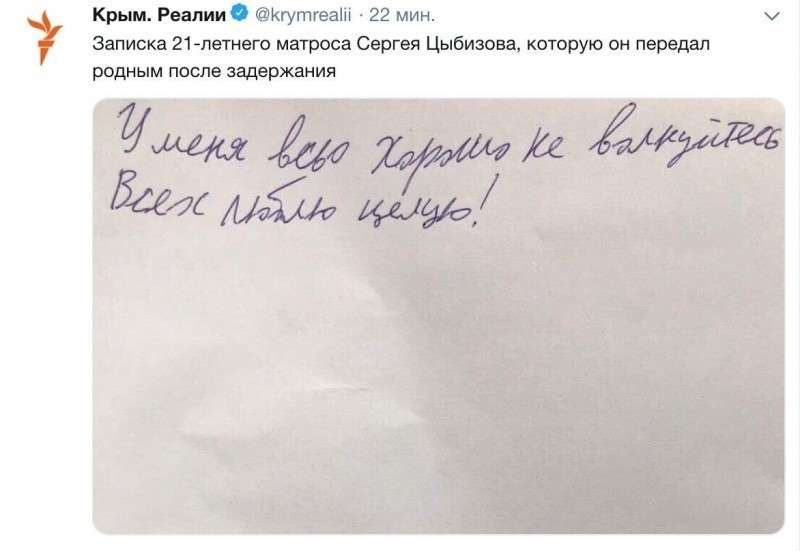 Крым. Реалии @krymrealii · 22 мин.
Записка 21-летнего матроса Сергея Цыбизова, которую он передал
родным после задержания
У меня всьо хорошо не волнуйтесь
Всех люблю целую!